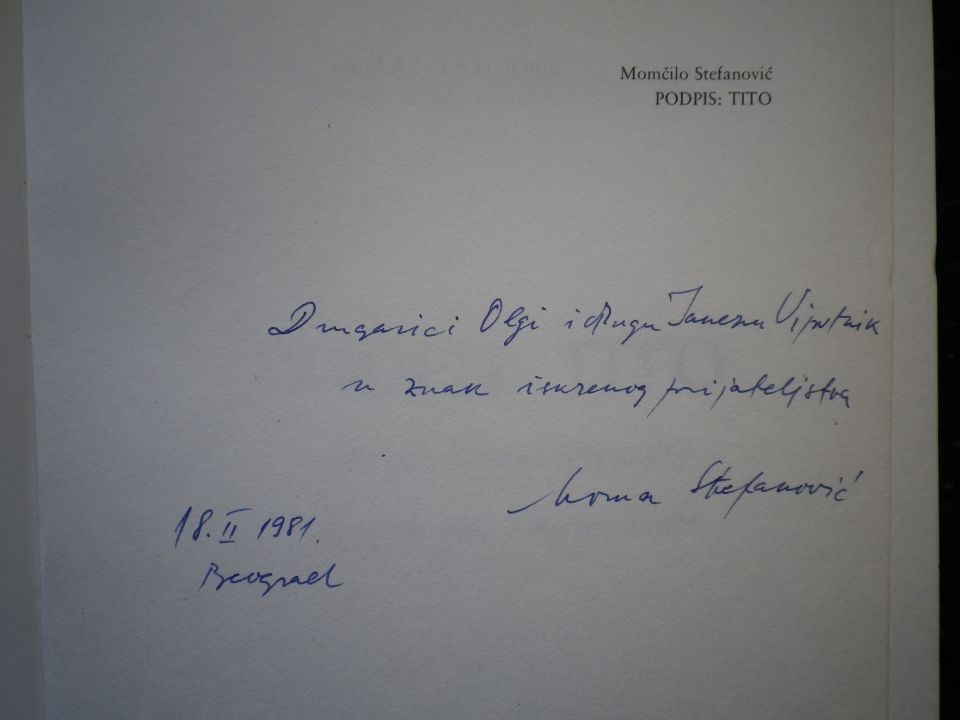 Momčilo Stefanović
PODPIS: TITO
Drugarici Olgi i drugu Janezu Vipotnik
u znak iskrenog prijateljstva
Moma Stefanović
18. II 1981.
Beograd